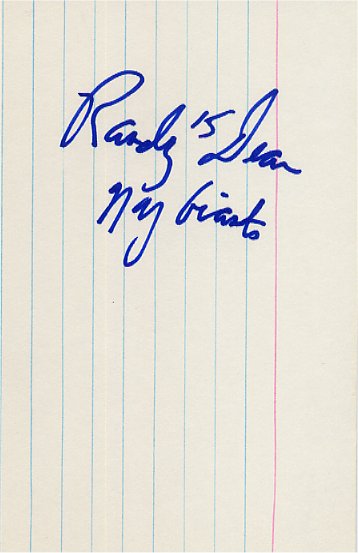 Randy 15 Dean
NY Giants